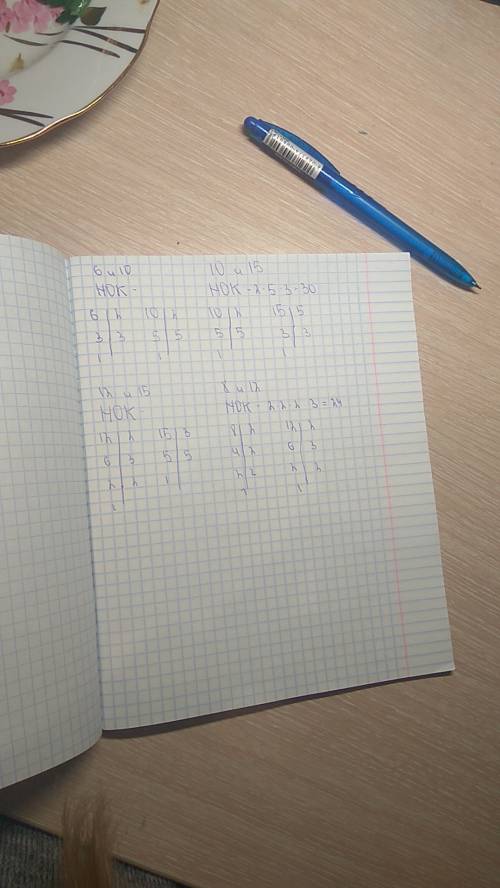 6 и 10
НОК -
6 | 2 10 | 2
3 | 3 5 | 5
1 1
10 и 15
НОК - 2·5·3=30
10 | 2 15 | 5
5 | 5 3 | 3
1 1
12 и 15
НОК
12 | 2 15 | 3
6 | 3 5 | 5
2 | 2 1
1
8 и 12
НОК - 2 2·2 3 = 24
8 | 2 12 | 2
4 | 2 6 | 3
2 | 2 2 | 2
1 1